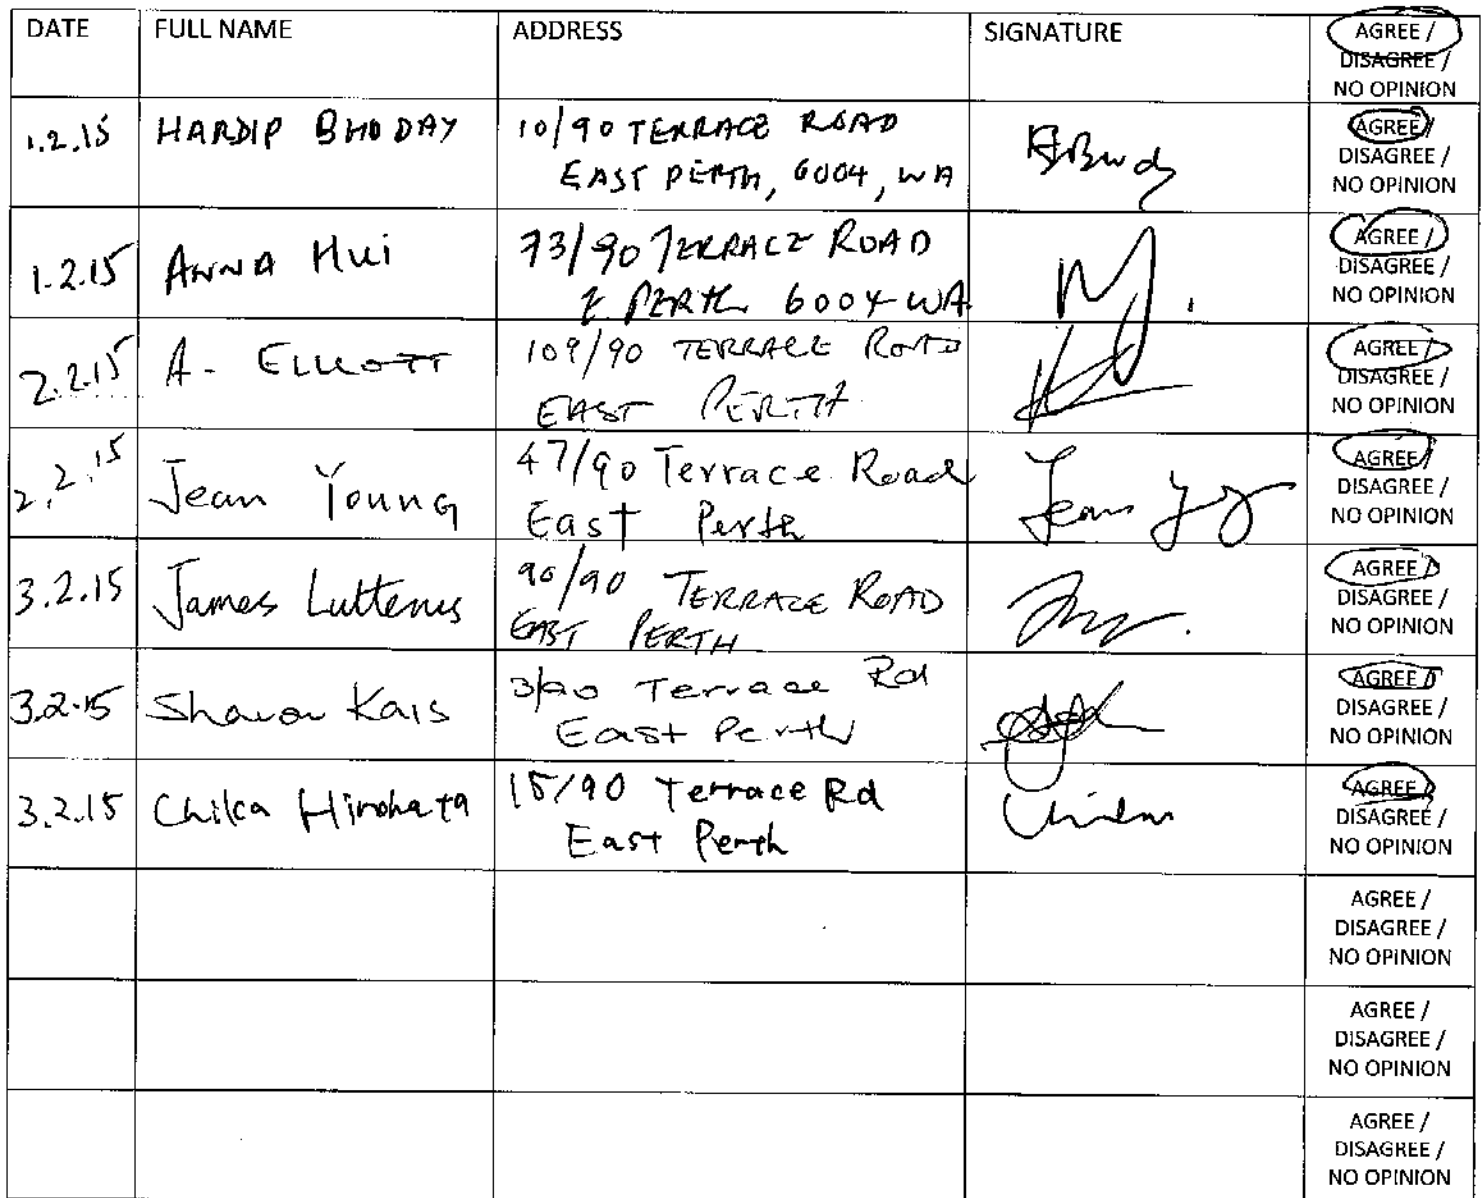 DATE FULL NAME ADDRESS SIGNATURE AGREE /
DISAGREE /
NO OPINION
1.2.15 HARDIP BHODAY 10/90 TERRACE ROAD AGREE /
EAST PERTH, 6004, WA DISAGREE /
NO OPINION
1.2.15 ANNA HUi 73/90 TERRACE ROAD AGREE /
E. PERTH 6004 WA DISAGREE /
NO OPINION
2.2.15 A. ELLIOTT 109/90 TERRACE ROAD AGREE /
EAST PERTH DISAGREE /
NO OPINION
2.2.15 Jean Young 47/90 Terrace Road Jean AGREE /
East Perth DISAGREE /
NO OPINION
3.2.15 James 90/90 TERRACE ROAD AGREE /
EAST PERTH DISAGREE /
NO OPINION
3.2.15 Sharon Kais 3/90 Terrace Rd AGREE /
East Perth DISAGREE /
NO OPINION
3.2.15 Chika Hirohata 15/90 Terrace Rd AGREE /
East Perth DISAGREE /
NO OPINION
AGREE /
DISAGREE /
NO OPINION
AGREE /
DISAGREE /
NO OPINION
AGREE /
DISAGREE /
NO OPINION